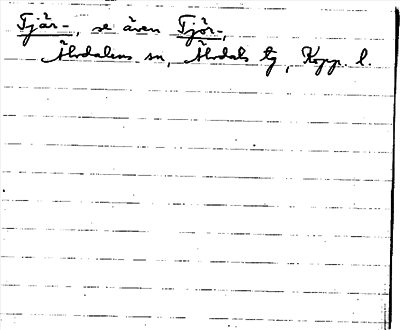 Tjär-, se även Tjör-,
Älvdalens sn, Älvdals tg, Kopp. l.